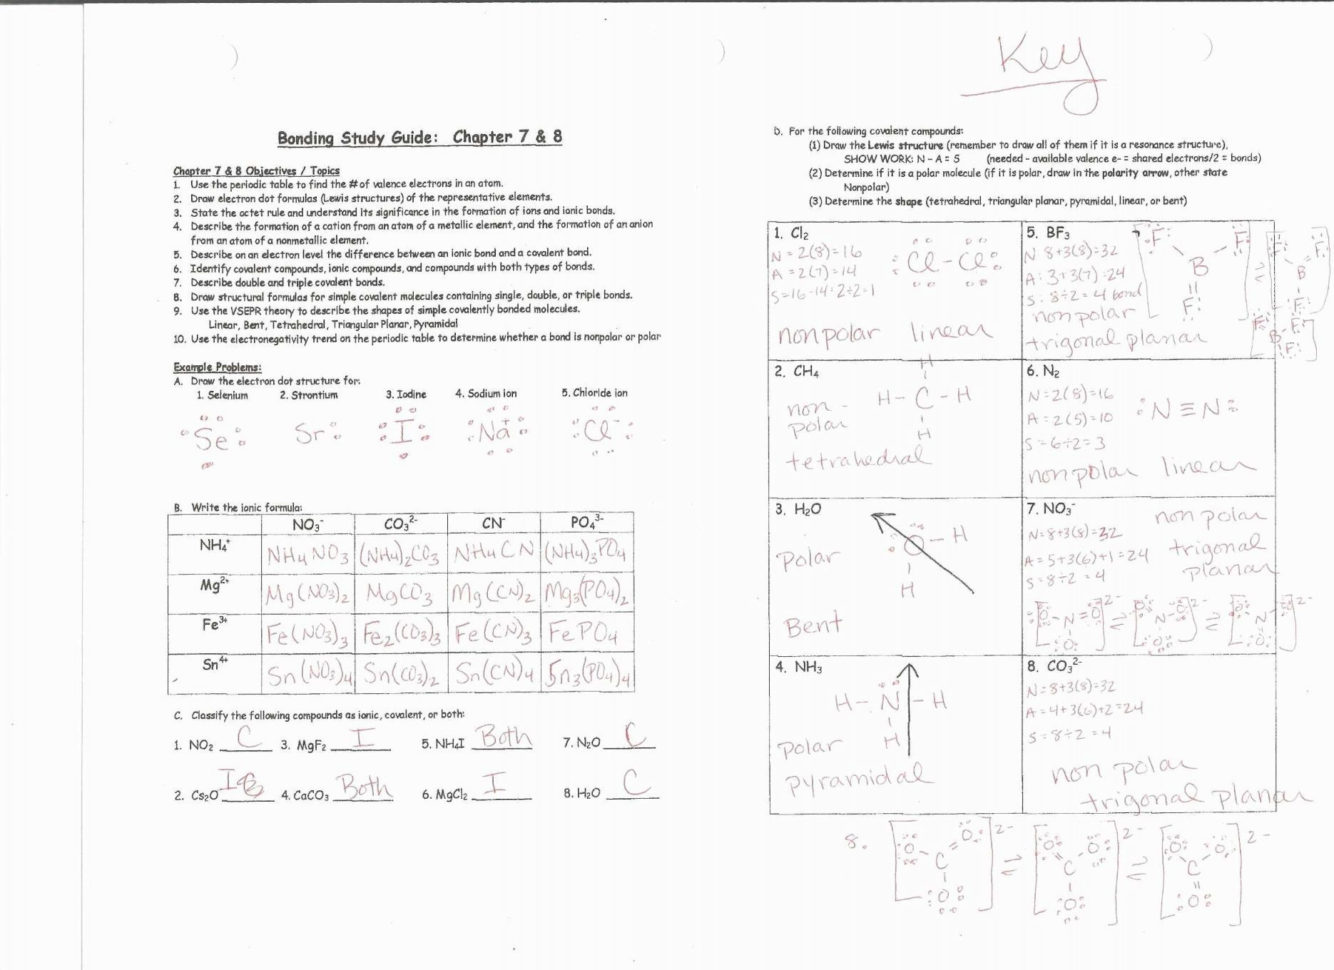 Key
Bonding Study Guide: Chapter 7 & 8
Chapter 7 & 8 Objectives / Topics
1. Use the periodic table to find the # of valence electrons in an atom.
2. Draw electron dot formulas (Lewis structures) of the representative elements.
3. State the octet rule and understand its significance in the formation of ions and ionic bonds.
4. Describe the formation of a cation from an atom of a metallic element, and the formation of an anion
from an atom of a nonmetallic element.
5. Describe on an electron level the difference between an ionic bond and a covalent bond.
6. Identify covalent compounds, ionic compounds, and compounds with both types of bonds.
7. Describe double and triple covalent bonds.
8. Draw structural formulas for simple covalent molecules containing single, double, or triple bonds.
9. Use the VSEPR theory to describe the shapes of simple covalently bonded molecules.
Linear, Bent, Tetrahedral, Triangular Planar, Pyramidal
10. Use the electronegativity trend on the periodic table to determine whether a bond is nonpolar or polar
Example Problems:
A. Draw the electron dot structure for:
1. Selenium 2. Strontium 3. Iodine 4. Sodium ion 5. Chloride ion
Se Sr I Na+ Cl-
B. Write the ionic formula:
NO3- CO3 2- CN- PO4 3-
NH4+ NH4NO3 (NH4)2CO3 NH4CN (NH4)3PO4
Mg2+ Mg(NO3)2 MgCO3 Mg(CN)2 Mg3(PO4)2
Fe3+ Fe(NO3)3 Fe2(CO3)3 Fe(CN)3 FePO4
Sn4+ Sn(NO3)4 Sn(CO3)2 Sn(CN)4 Sn3(PO4)4
C. Classify the following compounds as ionic, covalent, or both:
1. NO2 C 3. MgF2 I 5. NH4I Both 7. N2O C
2. Cs2O I 4. CaCO3 Both 6. MgCl2 I 8. H2O C
D. For the following covalent compounds:
(1) Draw the Lewis structure (remember to draw all of them if it is a resonance structure),
SHOW WORK: N - A = S (needed - available valence e- = shared electrons/2 = bonds)
(2) Determine if it is a polar molecule (if it is polar, draw in the polarity arrow, other state
Nonpolar)
(3) Determine the shape (tetrahedral, triangular planar, pyramidal, linear, or bent)
1. Cl2
N = 2(8)=16
A = 2(7)=14
S=16-14=2÷2=1
Cl - Cl
nonpolar linear
5. BF3
N 8+3(8)=32
A: 3+3(7)=24
S: 8÷2=4 bond
nonpolar
trigonal planar
F F
B
F
F F
B
F
F F
B
F
2. CH4
H
H - C - H
H
non-
polar
tetrahedral
6. N2
N=2(8)=16
A=2(5)=10
S=6÷2=3
N≡N
nonpolar linear
3. H2O
O - H
H
Polar
Bent
7. NO3-
N=8+3(8)=32
A=5+3(6)+1=24
S=8÷2=4
non polar
trigonal
planar
[O-N=O O]2- ⇌ [O N O O]2- ⇌ [O N O O]2-
4. NH3
H - N - H
H
polar
pyramidal
8. CO3 2-
N=8+3(8)=32
A=4+3(6)+2=24
S=8÷2=4
non polar
trigonal planar
8. [O C O O]2- ⇌ [O C O O]2- ⇌ [O C O O]2-